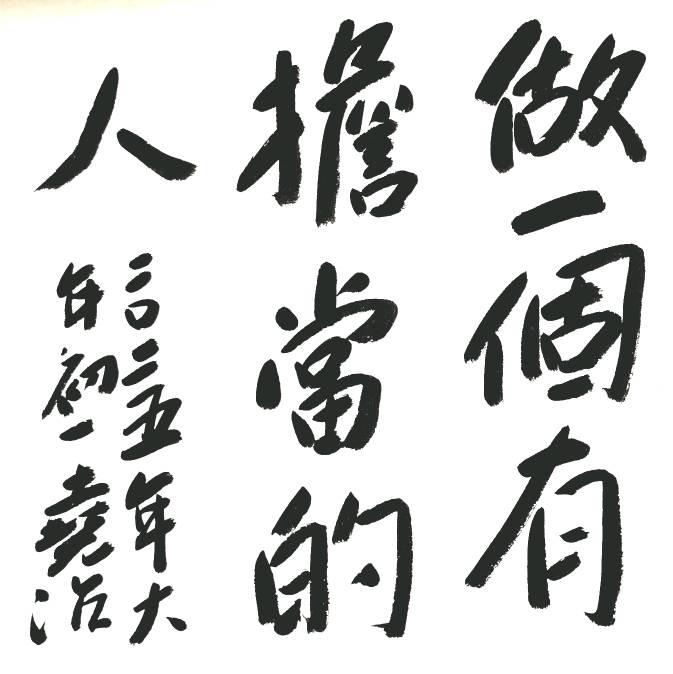 做一個有
擔當的
人
二〇二五年大
年初一堯治